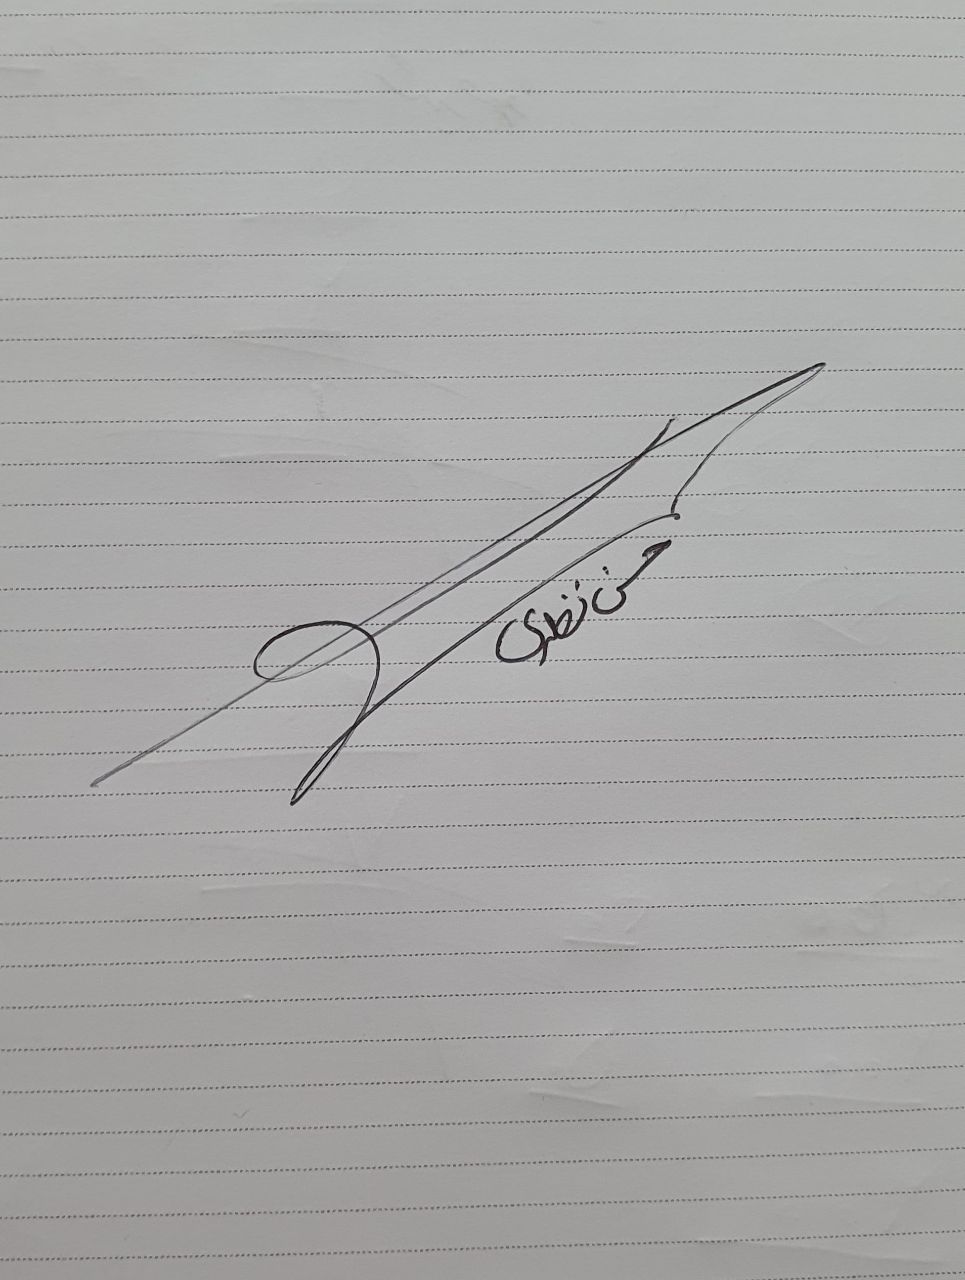 حسن نظری